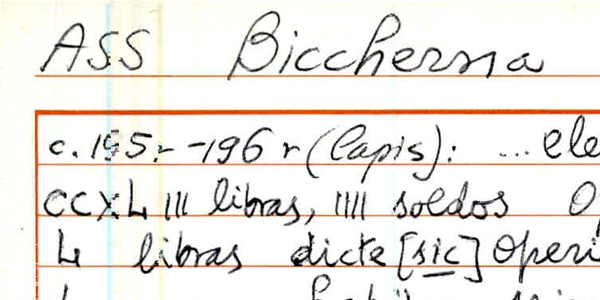 ASS Biccherna
c. 195r-196r (lapis): ... ele
CCXLIII libras, IIII soldos O
L libras dicte [sic] Operi